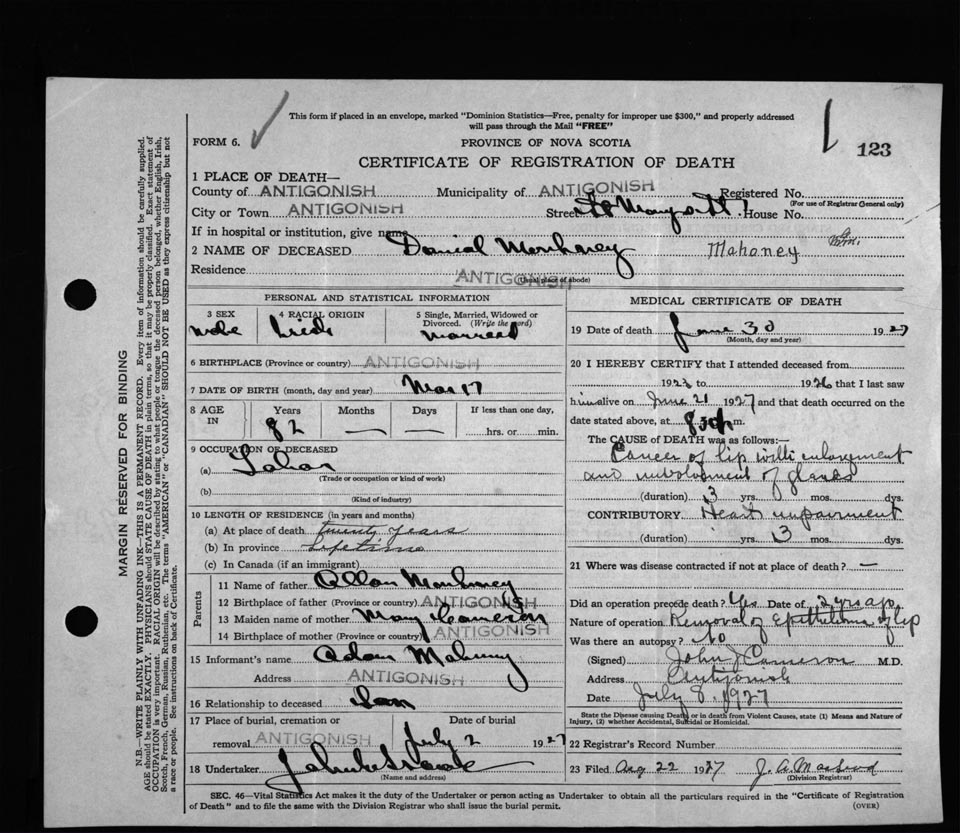 This form if placed in an envelope, marked "Dominion Statistics—Free, penalty for improper use $300," and properly addressed
will pass through the Mail "FREE"
FORM 6.
PROVINCE OF NOVA SCOTIA
123
CERTIFICATE OF REGISTRATION OF DEATH
1 PLACE OF DEATH—
County of ANTIGONISH Municipality of ANTIGONISH Registered No.
(For use of Registrar General only)
City or Town ANTIGONISH Street House No.
If in hospital or institution, give name
2 NAME OF DECEASED Daniel Mahoney
Residence ANTIGONISH
(Usual place of abode)
PERSONAL AND STATISTICAL INFORMATION
3 SEX
4 RACIAL ORIGIN
5 Single, Married, Widowed or
Divorced. (Write the word)
Married
6 BIRTHPLACE (Province or country) ANTIGONISH
7 DATE OF BIRTH (month, day and year) Mar 17
8 AGE IN Years Months Days If less than one day,
82 — — hrs. or min.
9 OCCUPATION OF DECEASED
(a)
(Trade or occupation or kind of work)
(b)
(Kind of industry)
10 LENGTH OF RESIDENCE (in years and months)
(a) At place of death twenty years
(b) In province Lifetime
(c) In Canada (if an immigrant)
Parents
11 Name of father Allan
12 Birthplace of father (Province or country) ANTIGONISH
13 Maiden name of mother Mary Cameron
14 Birthplace of mother (Province or country) ANTIGONISH
15 Informant's name Adam
Address ANTIGONISH
16 Relationship to deceased Son
17 Place of burial, cremation or Date of burial
removal ANTIGONISH July 2 1927
18 Undertaker
(Name and address)
MEDICAL CERTIFICATE OF DEATH
19 Date of death June 30 1927
(Month, day and year)
20 I HEREBY CERTIFY that I attended deceased from
192 to 1926 that I last saw
him alive on June 21 1927 and that death occurred on the
date stated above, at 8.30 p m.
The CAUSE of DEATH was as follows:—
Cancer of lip with enlargement
and involvement of glands
(duration) 3 yrs. mos. dys.
CONTRIBUTORY Heart impairment
(duration) yrs. 3 mos. dys.
21 Where was disease contracted if not at place of death? —
Did an operation precede death? Yes Date of 2 yrs ago
Nature of operation Removal of Epithelioma of lip
Was there an autopsy? No
(Signed) John J Cameron M.D.
Address Antigonish
Date July 8. 1927
State the Disease causing Death, or in death from Violent Causes, state (1) Means and Nature of
Injury, (2) whether Accidental, Suicidal or Homicidal.
22 Registrar's Record Number
23 Filed Aug 22 1927 J. A.
(Division Registrar)
SEC. 46—Vital Statistics Act makes it the duty of the Undertaker or person acting as Undertaker to obtain all the particulars required in the "Certificate of Registration
of Death" and to file the same with the Division Registrar who shall issue the burial permit.
(OVER)
MARGIN RESERVED FOR BINDING
N.B.—WRITE PLAINLY WITH UNFADING INK—THIS IS A PERMANENT RECORD. Every item of information should be carefully supplied.
AGE should be stated EXACTLY. PHYSICIANS should STATE CAUSE OF DEATH in plain terms, so that it may be properly classified. Exact statement of
OCCUPATION is very important. RACIAL ORIGIN will be described by stating to what people or tongue the deceased person belonged, whether English, Irish,
Scotch, French, German, Russian, Ruthenian, etc. The terms "AMERICAN" or "CANADIAN" SHOULD NOT BE USED as they express citizenship but not
a race or people. See instructions on back of Certificate.